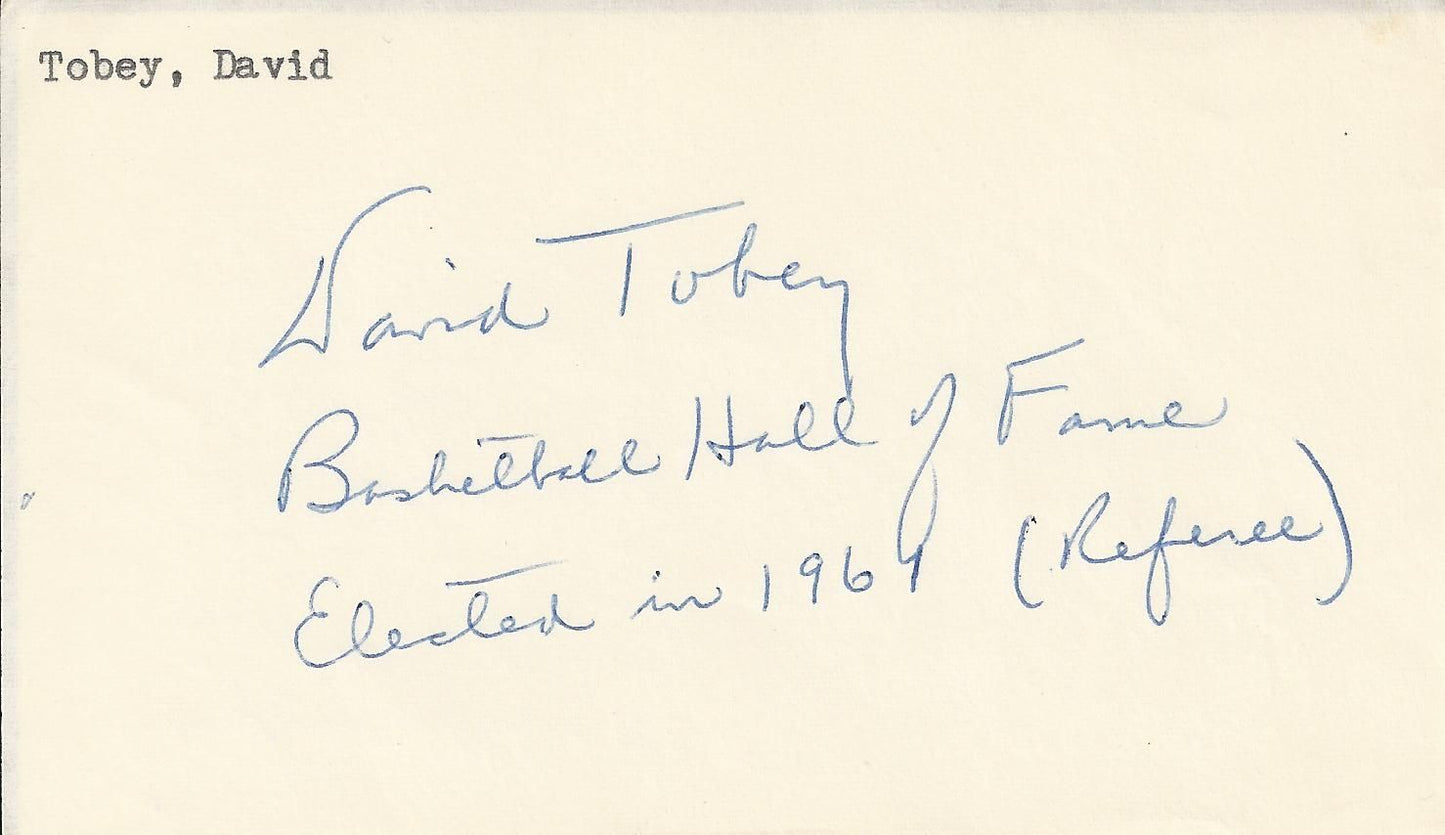 Tobey, David
David Tobey
Basketball Hall of Fame
Elected in 1961 (Referee)